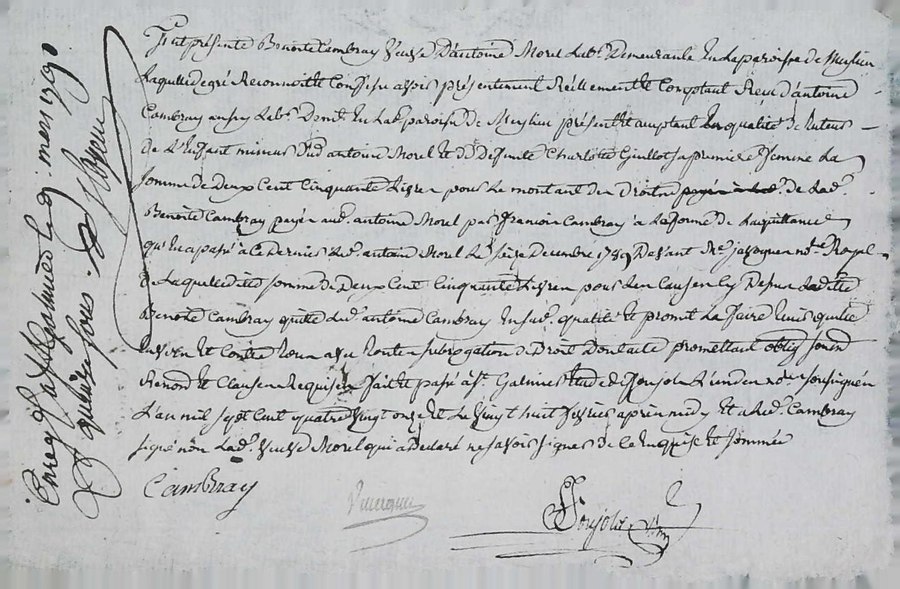 Fut présente Benoite Cambray Veuve D'antoine Morel Lab.r Demeurante En La paroisse de Meylieu
Laquelle degré Reconnoit Et Confesse avoir présentement Réellement Et Comptant Reçu d'antoine
Cambray aussy Lab.r Dem.t En Lad. paroisse De Meylieu présent Et acceptant En qualité de tuteur
De L'Enfant mineur dud. antoine Morel Et de Defunte Charlotte Guillot sa premiere femme La
somme de Deux Cent Cinquante Livres pour Le montant des Droits de Lad.
Benoite Cambray payés aud. antoine Morel par francois Cambray a La forme de La quittance
qu'En a passé à ce Dernier Led. antoine Morel Le seize Decembre 1789 Devant M.e No.re Royal
De Laquelle dite somme de Deux Cent Cinquante Livres pour Les Causes Cy Dessus Ladite
Benoite Cambray quitte Led. antoine Cambray En sad. qualité Et promet La faire tenir quitte
Envers Et Contre tous avec toute subrogation de Droit promettant oblig.
Renon. Et Clauses Requises fait Et passé à S.t Galmier Etude de Poujol L'un des No.res soussignés
L'an mil sept Cent quatre vingt onze Et Le vingt huit fevrier après midy Et a Led. Cambray
signé non Lad. Veuve Morel qui a Declaré ne savoir signer De ce Enquise Et sommée
Cambray
Enreg. a S.t Galmier Le 9 mars 1791
quinze sous